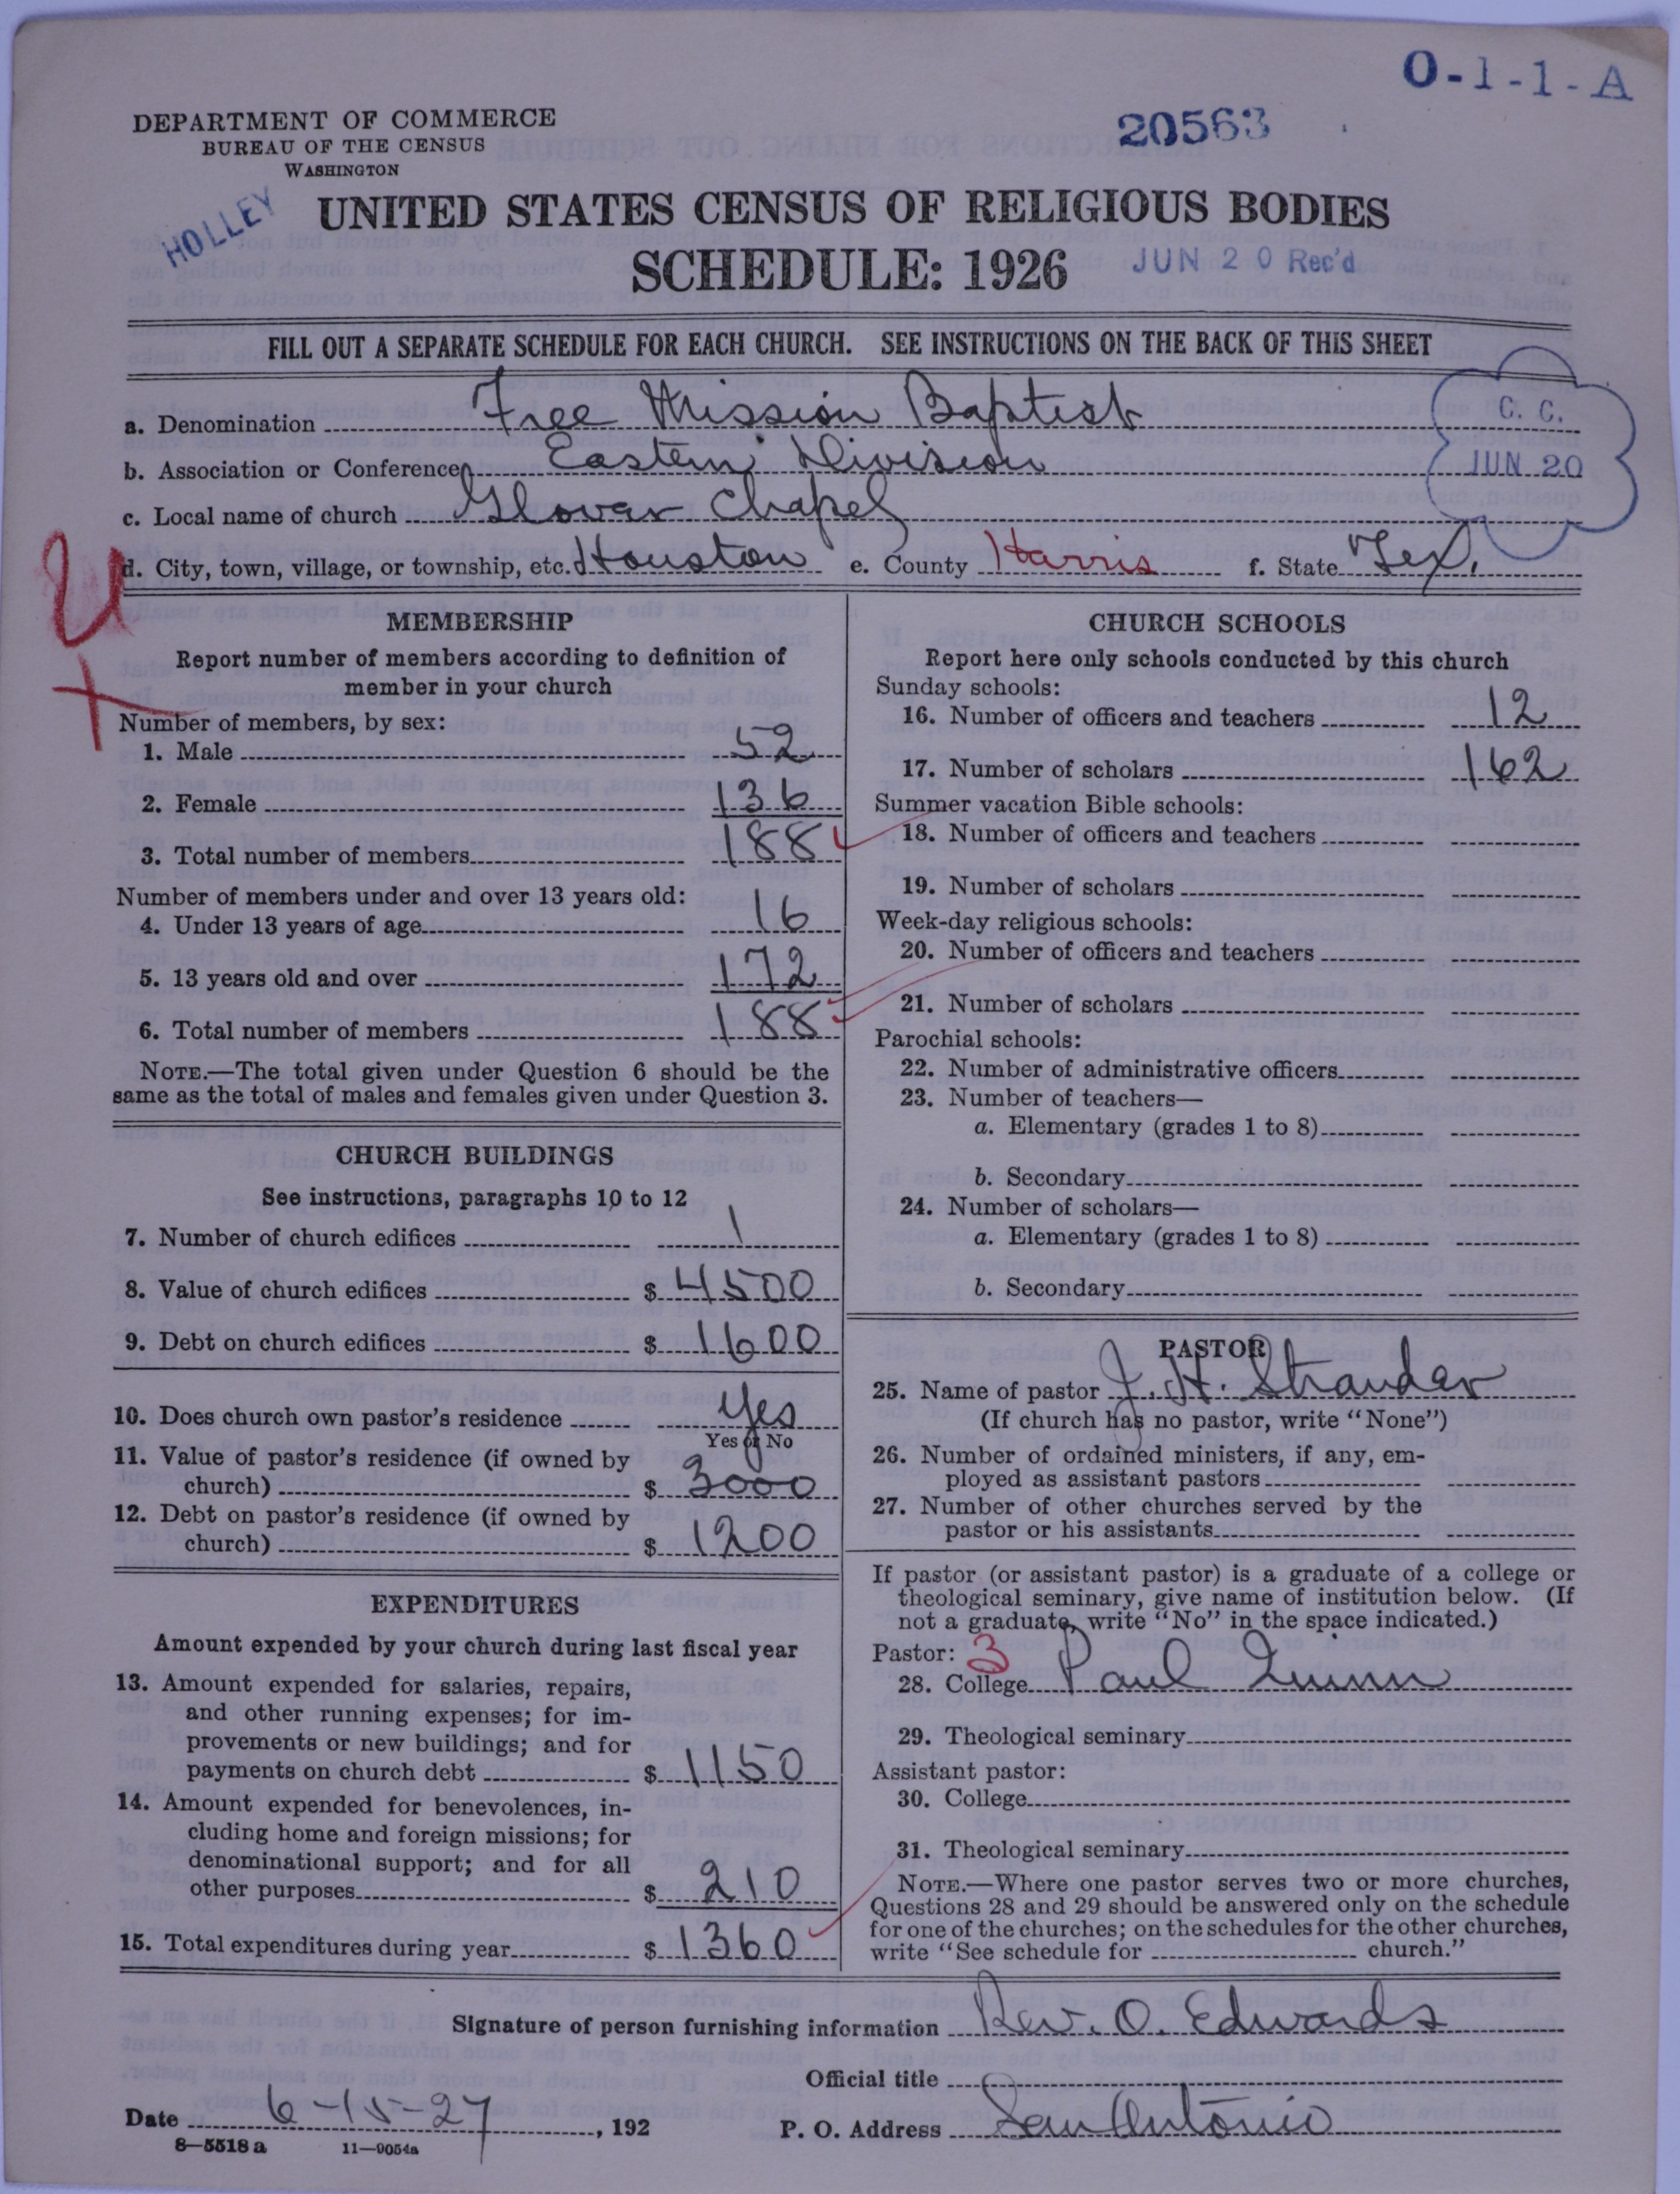 O-1-1-A
DEPARTMENT OF COMMERCE
BUREAU OF THE CENSUS
WASHINGTON
20563
HOLLEY
UNITED STATES CENSUS OF RELIGIOUS BODIES
SCHEDULE: 1926
JUN 20 Rec'd
FILL OUT A SEPARATE SCHEDULE FOR EACH CHURCH. SEE INSTRUCTIONS ON THE BACK OF THIS SHEET
a. Denomination Free Mission Baptist
C. C.
JUN 20
b. Association or Conference Eastern Division
c. Local name of church Glovar Chapel
d. City, town, village, or township, etc. Houston e. County Harris f. State Tex.
U
MEMBERSHIP
Report number of members according to definition of
member in your church
Number of members, by sex:
1. Male 52
2. Female 136
3. Total number of members 188
Number of members under and over 13 years old:
4. Under 13 years of age 16
5. 13 years old and over 172
6. Total number of members 188
NOTE.—The total given under Question 6 should be the
same as the total of males and females given under Question 3.
CHURCH BUILDINGS
See instructions, paragraphs 10 to 12
7. Number of church edifices 1
8. Value of church edifices $ 4500
9. Debt on church edifices $ 1600
10. Does church own pastor's residence Yes
Yes or No
11. Value of pastor's residence (if owned by
church) $ 3000
12. Debt on pastor's residence (if owned by
church) $ 1200
EXPENDITURES
Amount expended by your church during last fiscal year
13. Amount expended for salaries, repairs,
and other running expenses; for im-
provements or new buildings; and for
payments on church debt $ 1150
14. Amount expended for benevolences, in-
cluding home and foreign missions; for
denominational support; and for all
other purposes $ 210
15. Total expenditures during year $ 1360
CHURCH SCHOOLS
Report here only schools conducted by this church
Sunday schools:
16. Number of officers and teachers 12
17. Number of scholars 162
Summer vacation Bible schools:
18. Number of officers and teachers
19. Number of scholars
Week-day religious schools:
20. Number of officers and teachers
21. Number of scholars
Parochial schools:
22. Number of administrative officers
23. Number of teachers—
a. Elementary (grades 1 to 8)
b. Secondary
24. Number of scholars—
a. Elementary (grades 1 to 8)
b. Secondary
PASTOR
25. Name of pastor J. H. Strauder
(If church has no pastor, write "None")
26. Number of ordained ministers, if any, em-
ployed as assistant pastors
27. Number of other churches served by the
pastor or his assistants
If pastor (or assistant pastor) is a graduate of a college or
theological seminary, give name of institution below. (If
not a graduate, write "No" in the space indicated.)
Pastor: 3
28. College Paul Quinn
29. Theological seminary
Assistant pastor:
30. College
31. Theological seminary
NOTE.—Where one pastor serves two or more churches,
Questions 28 and 29 should be answered only on the schedule
for one of the churches; on the schedules for the other churches,
write "See schedule for church."
Signature of person furnishing information Rev. O. Edwards
Official title
Date 6-15-27, 192 P. O. Address San Antonio
8—5518 a 11—9054a